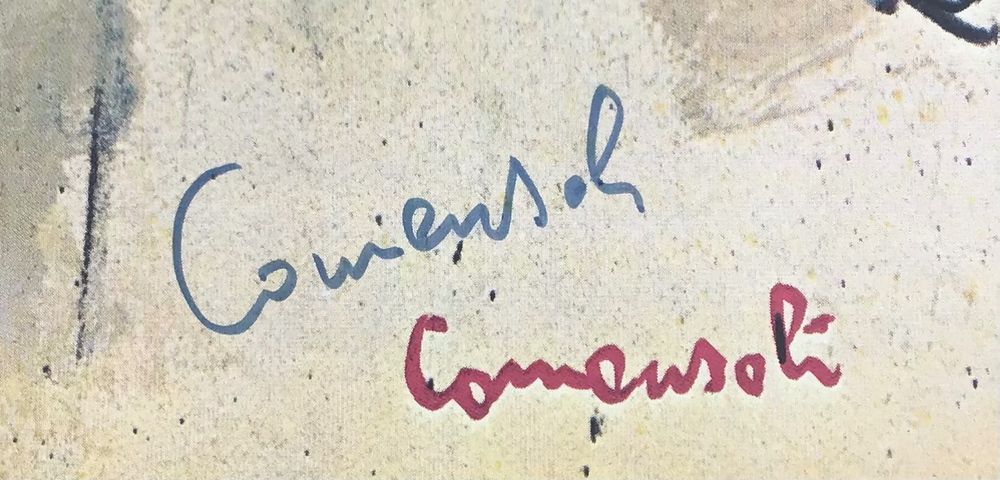 Comensoli
Comensoli